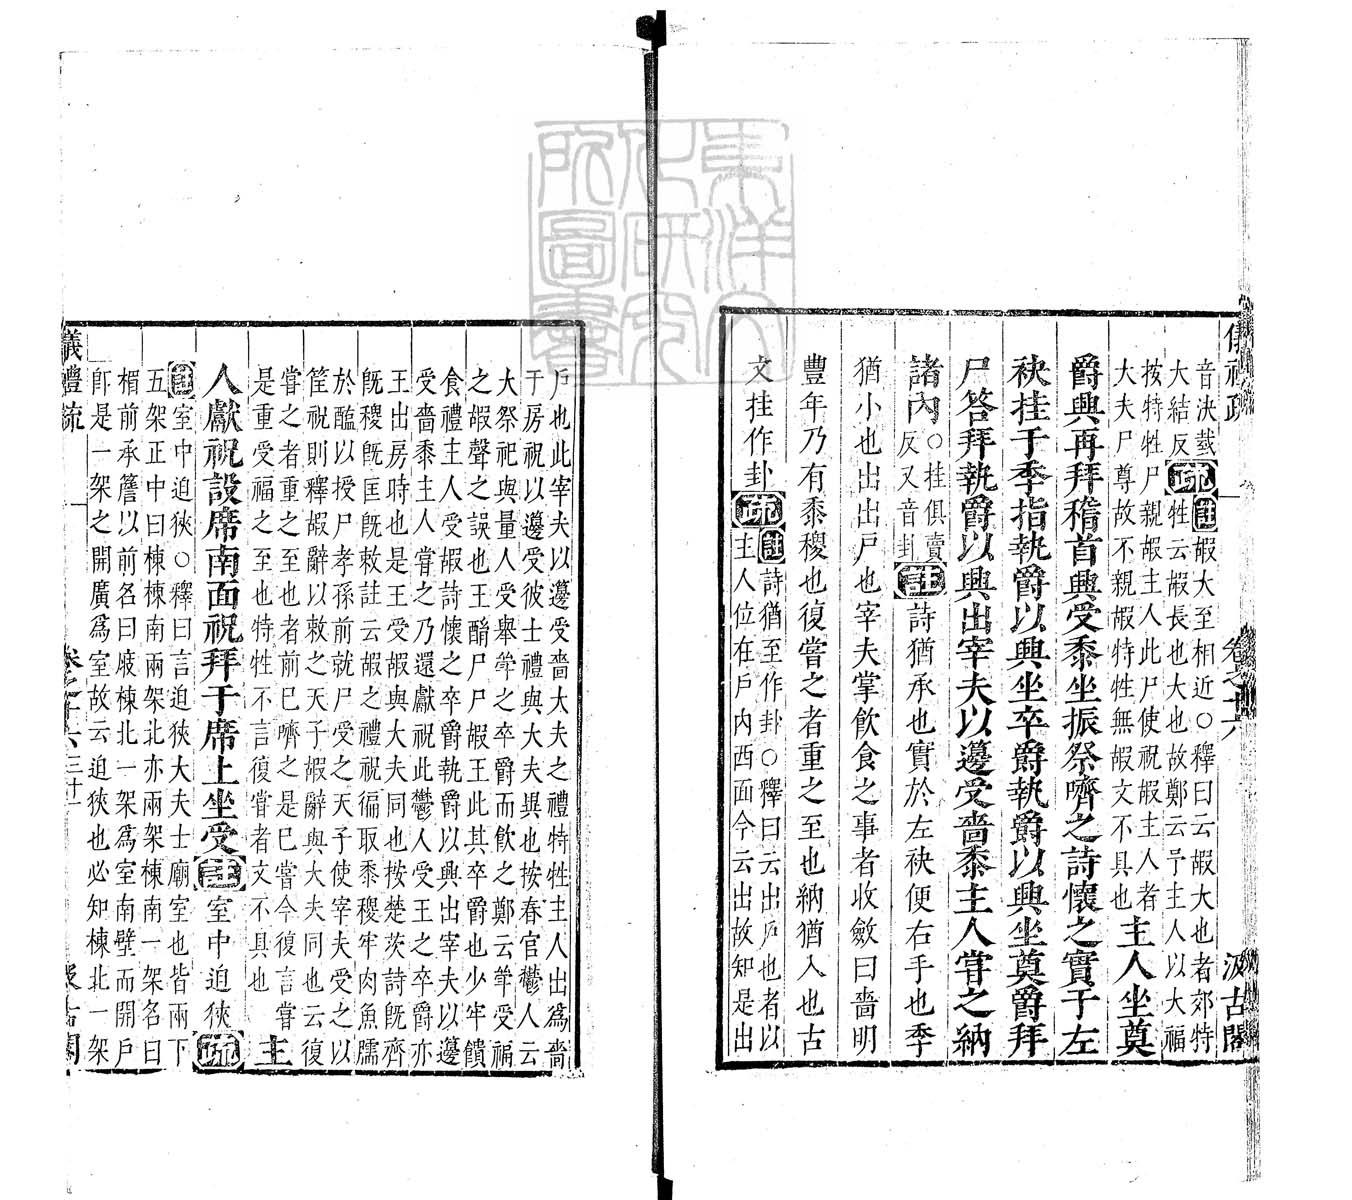 音決㦸
大結反疏註嘏大至相近○釋曰云嘏大也者郊特
牲云嘏長也大也故鄭云予主人以大福
按特牲尸親嘏主人此尸使祝嘏主人者
大夫尸尊故不親嘏特牲無嘏文不具也
主人坐奠
爵興再拜稽首興受黍坐振祭嚌之詩懷之實于左
袂挂于季指執爵以興坐卒爵執爵以興坐奠爵拜
尸答拜執爵以興出宰夫以籩受嗇黍主人嘗之納
諸內○挂俱賣
反又音卦註詩猶承也實於左袂便右手也季
猶小也出出戸也宰夫掌飲食之事者收斂曰嗇明
豐年乃有黍稷也復嘗之者重之至也納猶入也古
文挂作卦疏註詩猶至作卦○釋曰云出戸也者以
主人位在戶內西面今云出故知是出
戶也此宰夫以籩受嗇大夫之禮特牲主人出爲嗇
于房祝以籩受彼士禮與大夫異也按春官鬱人云
大祭祀與量人受舉斝之卒爵而飲之鄭云斝受福
之嘏聲之誤也王酳尸尸嘏王此其卒爵也少牢饋
食禮主人受嘏詩懷之卒爵執爵以興出宰夫以籩
受嗇黍主人嘗之乃還獻祝此鬱人受王之卒爵亦
王出房時也是王受嘏與大夫同也按楚茨詩旣齊
旣稷旣匡旣敕註云嘏之禮祝徧取黍稷牢肉魚擩
於醢以授尸孝孫前就尸受之天子使宰夫受之以
筐祝則釋嘏辭以敕之天子嘏辭與大夫同也云復
嘗之者重之至也者前已嚌之是已嘗今復言嘗
是重受福之至也特牲不言復嘗者文不具也
主
人獻祝設席南面祝拜于席上坐受註室中迫狹疏
註室中迫狹○釋曰言迫狹大夫士廟室也皆兩下
五架正中曰棟棟南兩架北亦兩架棟南一架名曰
楣前承簷以前名曰庪棟北一架爲室南壁而開戶
卽是一架之開廣爲室故云迫狹也必知棟北一架
儀禮疏
卷之十六
三十一
汲古閣